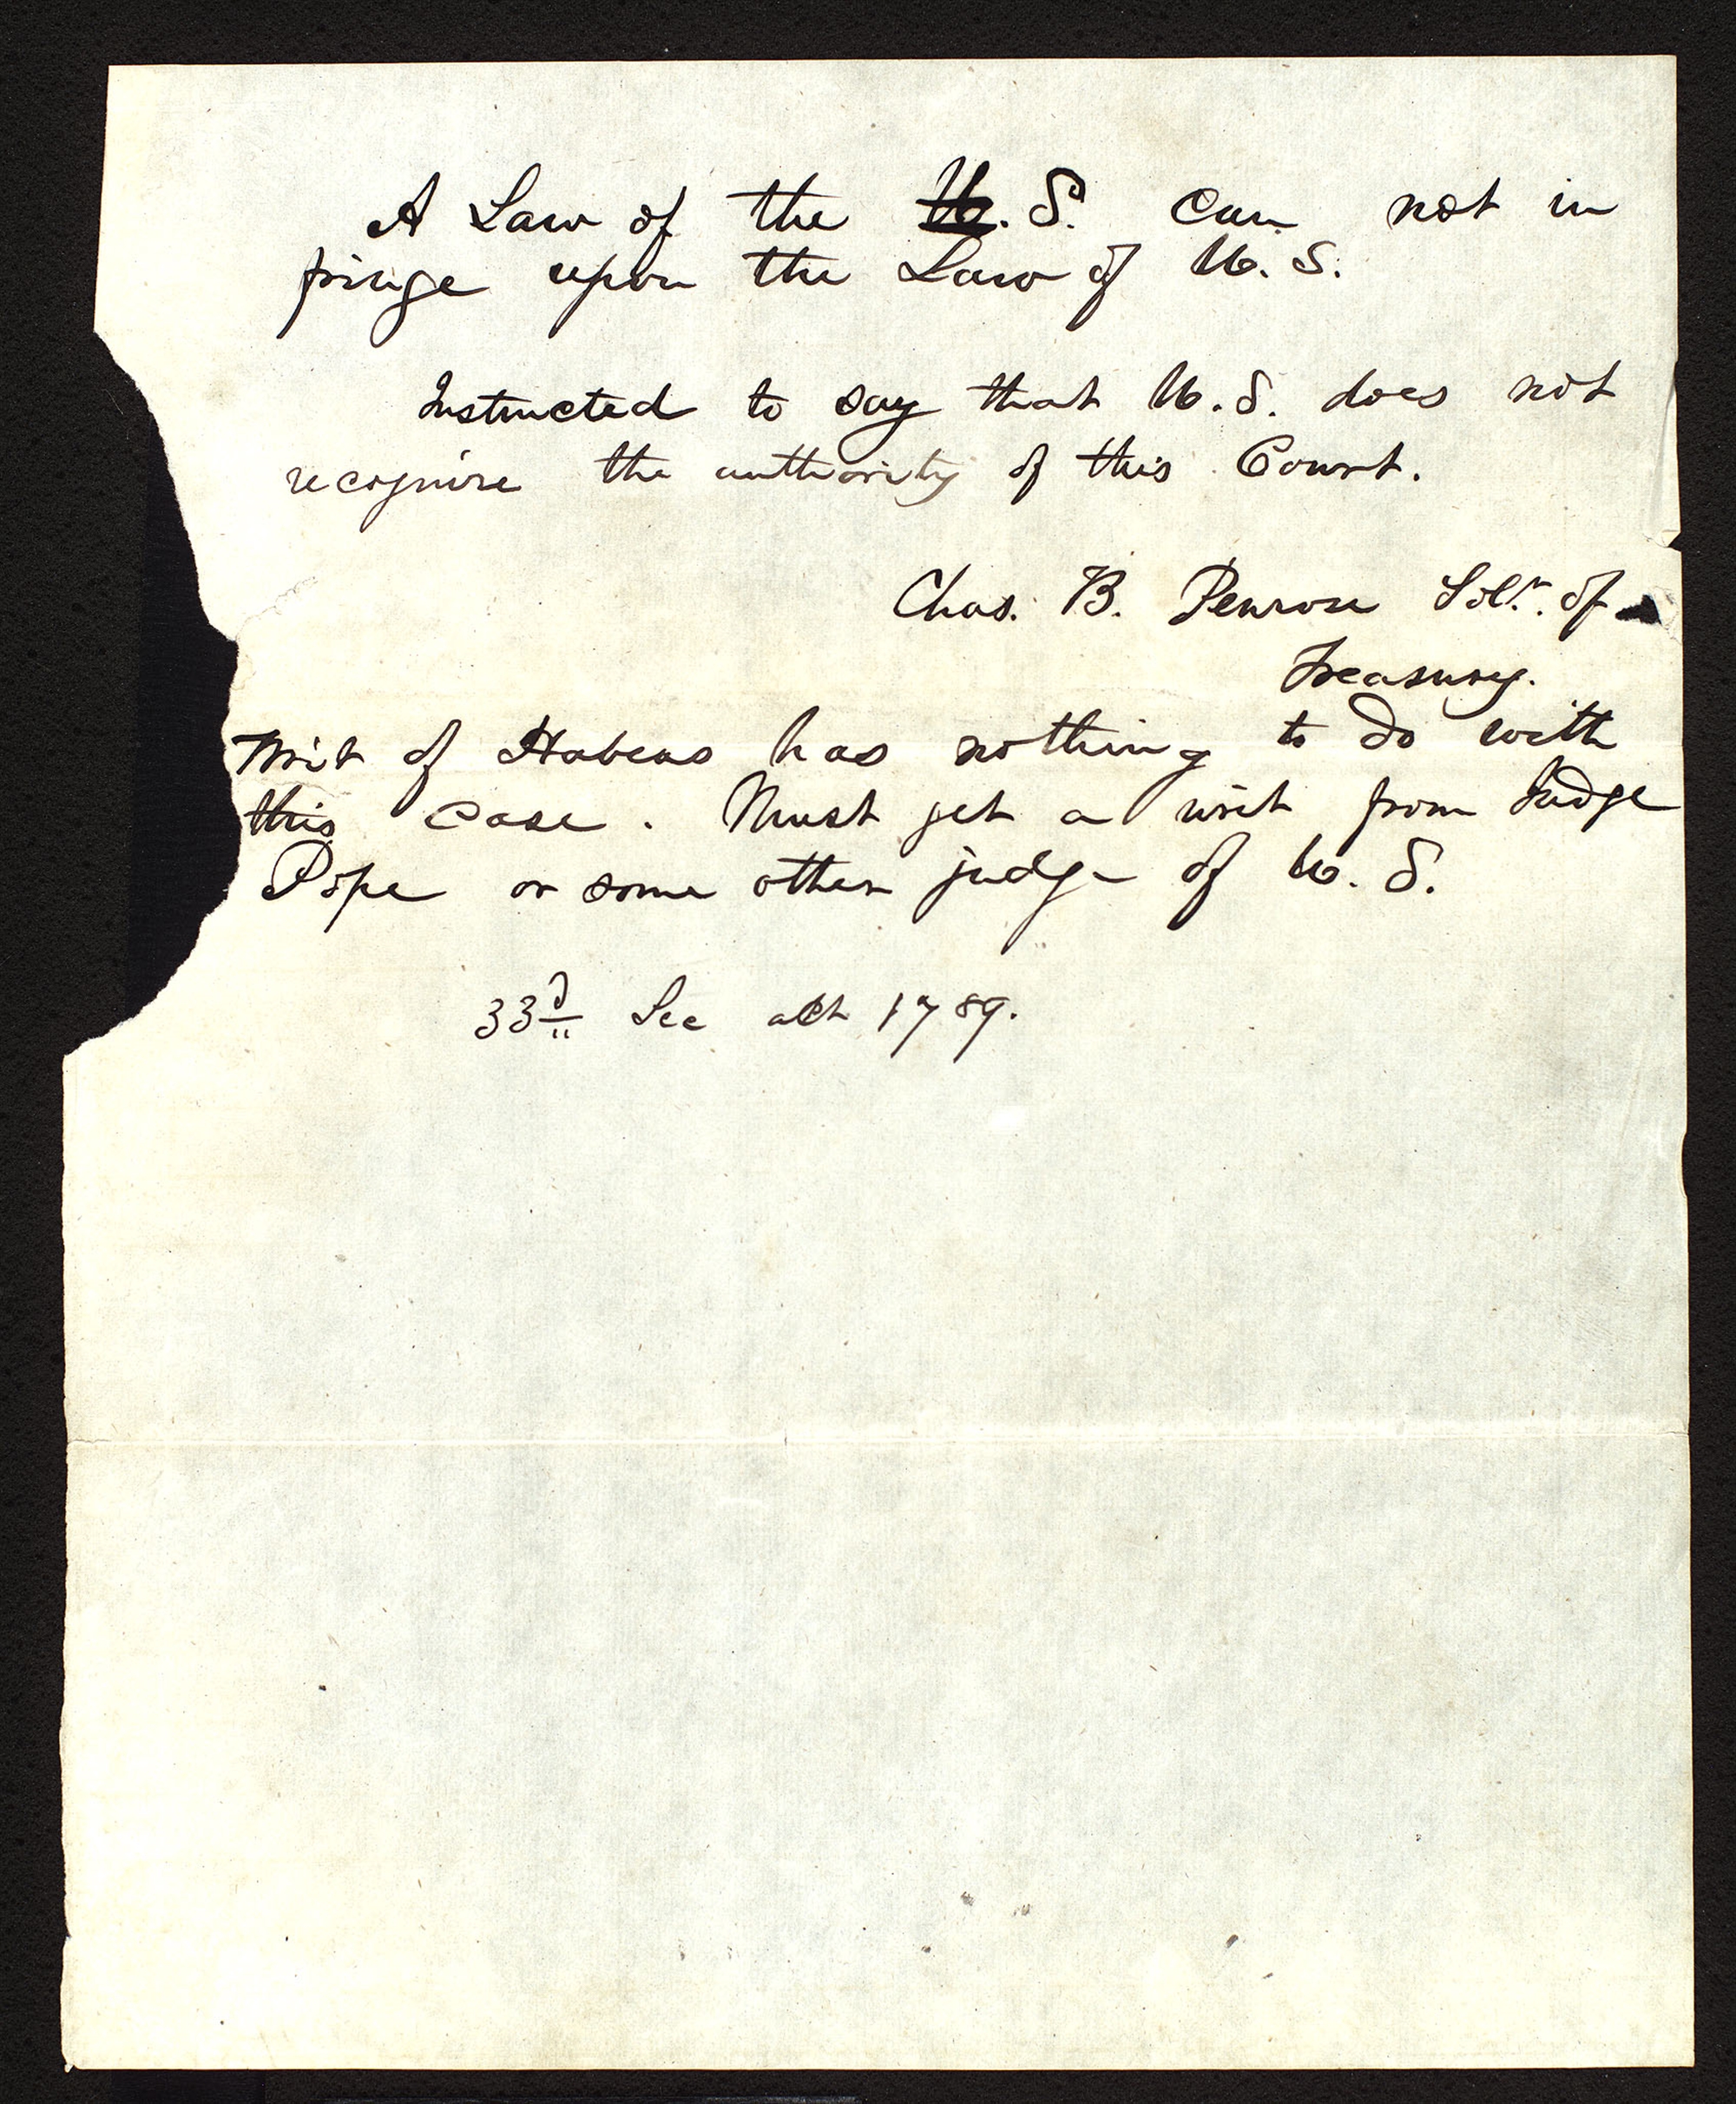 A Law of the U. S. can not in
fringe upon the Law of U. S.
Instructed to say that U. S. does not
recognize the authority of this Court.
Chas. B. Penrose Solr. of
Treasury.
Writ of Habeas has nothing to do with
this case. Must get a writ from Judge
Pope or some other judge of U. S.
33d Sec act 1789.